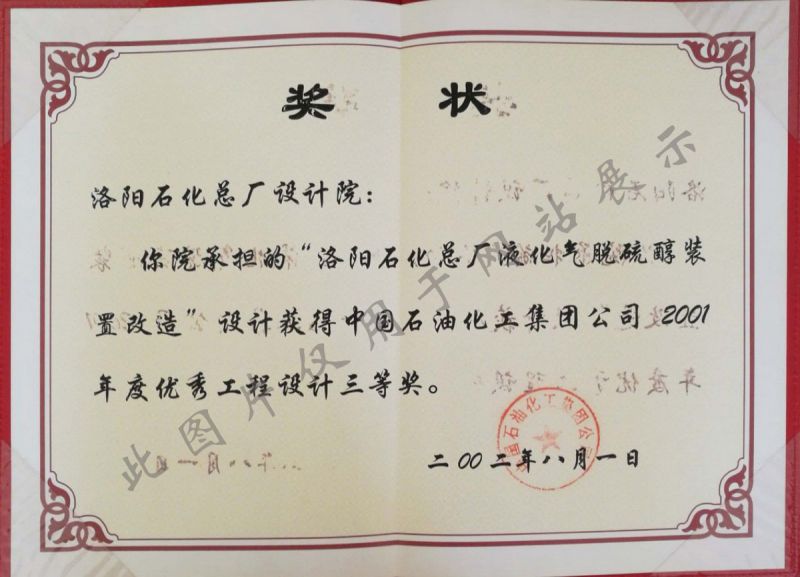 奖 状
洛阳石化总厂设计院：
你院承担的“洛阳石化总厂液化气脱硫醇装
置改造”设计获得中国石油化工集团公司 2001
年度优秀工程设计三等奖。
国石油化工集团公
二00二年八月一日
此图片仅用于网站展示